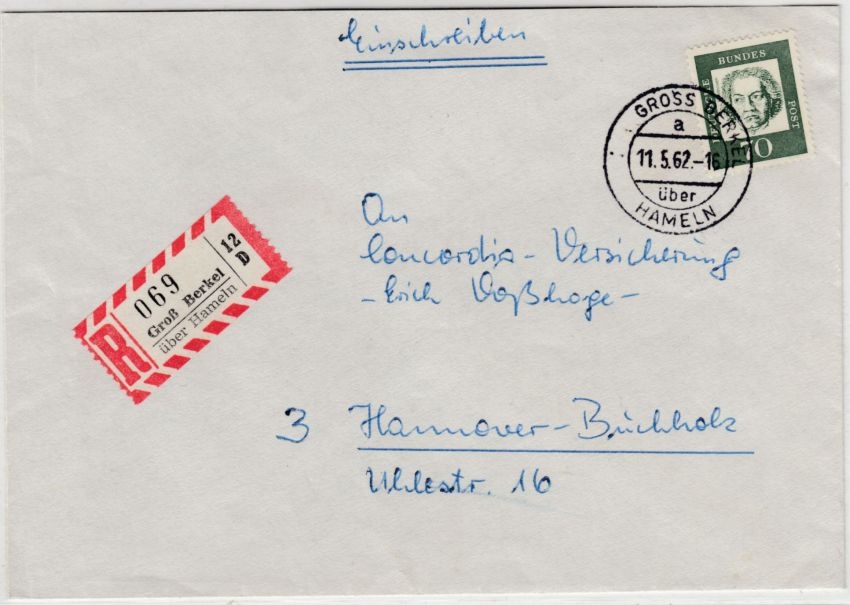 Einschreiben
BUNDES
POST
GROSS BERKEL
a
11.5.62.-16
über
HAMELN
12
D
069
Groß Berkel
über Hameln
R
An
Concordia-Versicherung
-Erich Voßhage-
3 Hannover-Buchholz
Uhlestr. 16